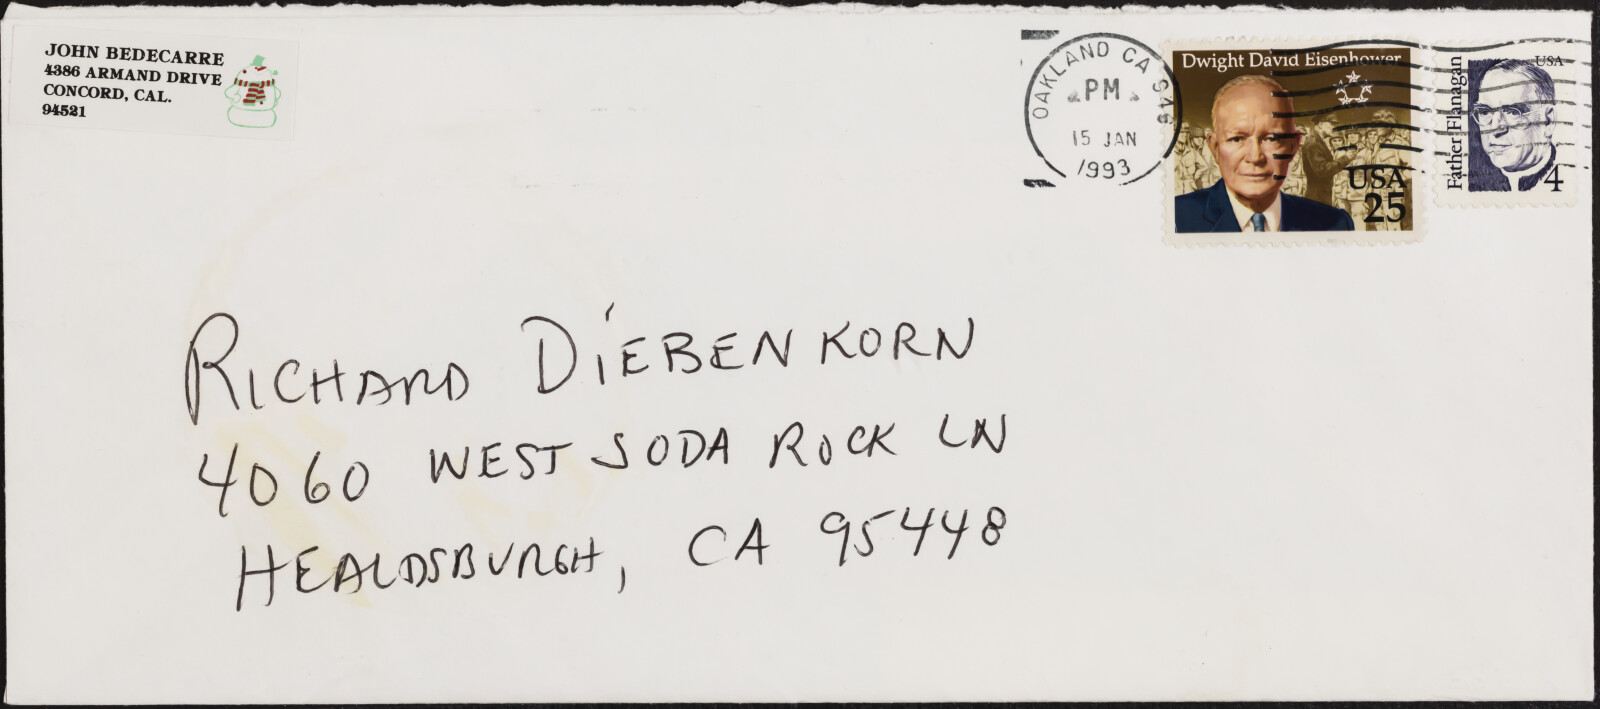 JOHN BEDECARRE
4386 ARMAND DRIVE
CONCORD, CAL.
94521
OAKLAND CA 946
PM
15 JAN
1993
Dwight David Eisenhower
USA
25
Father Flanagan
USA
4
RICHARD DIEBENKORN
4060 WEST SODA ROCK LN
HEALDSBURGH, CA 95448